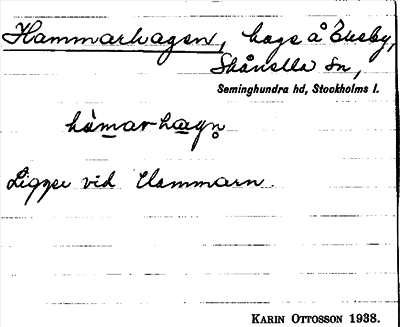 Hammarhagen, hage å Eneby,
Skånella sn,
Seminghundra hd, Stockholms l.
hàmarhagn̥
Ligger vid Hammarn.
KARIN OTTOSSON 1938.